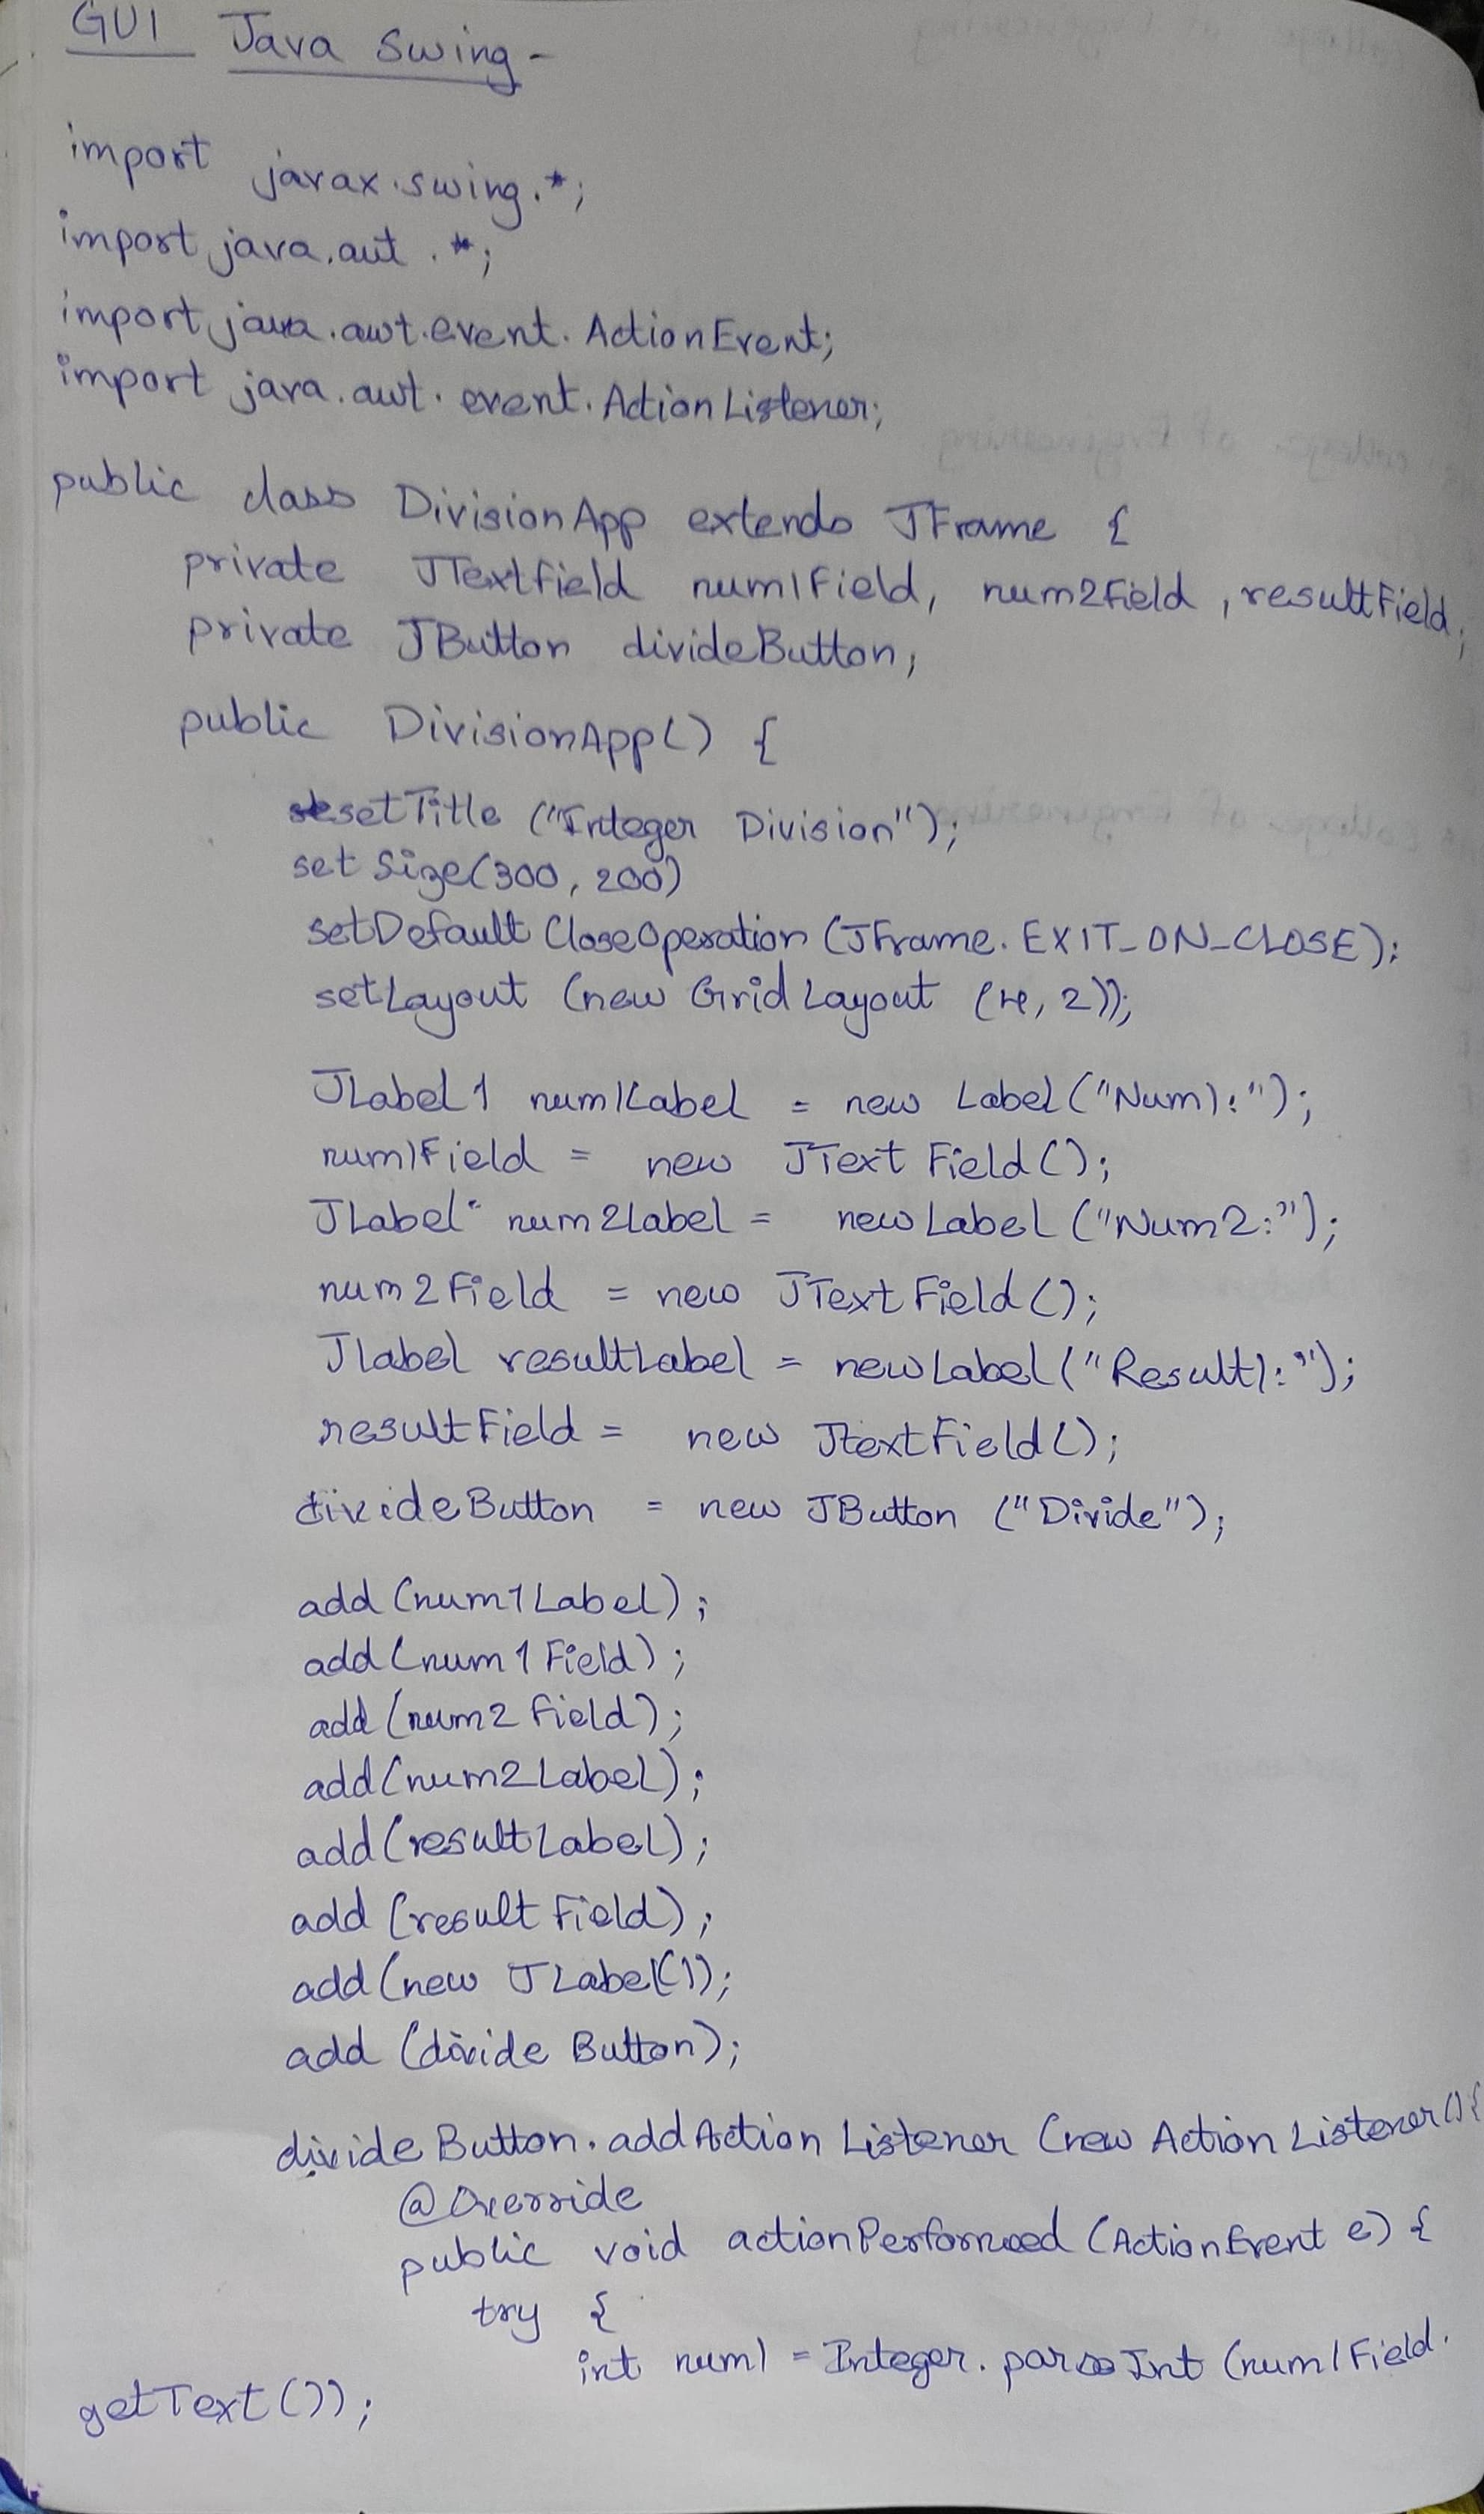 GUI Java Swing -
import javax.swing.*;
import java.aut.*;
import java.awt.event.ActionEvent;
import java.awt.event.ActionListener;
public class DivisionApp extends JFrame {
private JTextfield num1Field, num2Field, resultField;
private JButton divideButton;
public DivisionApp() {
setTitle ("Integer Division");
setSize(300, 200)
setDefaultCloseOperation (JFrame.EXIT_ON_CLOSE);
setLayout (new GridLayout (4, 2));
JLabel1 num1Label = new Label ("Num1:");
num1Field = new JTextField();
JLabel num2Label = new Label ("Num2:");
num2Field = new JTextField();
JLabel resultLabel = new Label ("Result):");
resultField = new JtextField();
divideButton = new JButton ("Divide");
add (num1Label);
add (num1Field);
add (num2Field);
add (num2Label);
add (resultLabel);
add (resultField);
add (new JLabel());
add (divideButton);
divideButton.addActionListener (new ActionListener(){
@Override
public void actionPerformed (ActionEvent e) {
try {
int num1 = Integer.parseInt (num1Field.
getText());